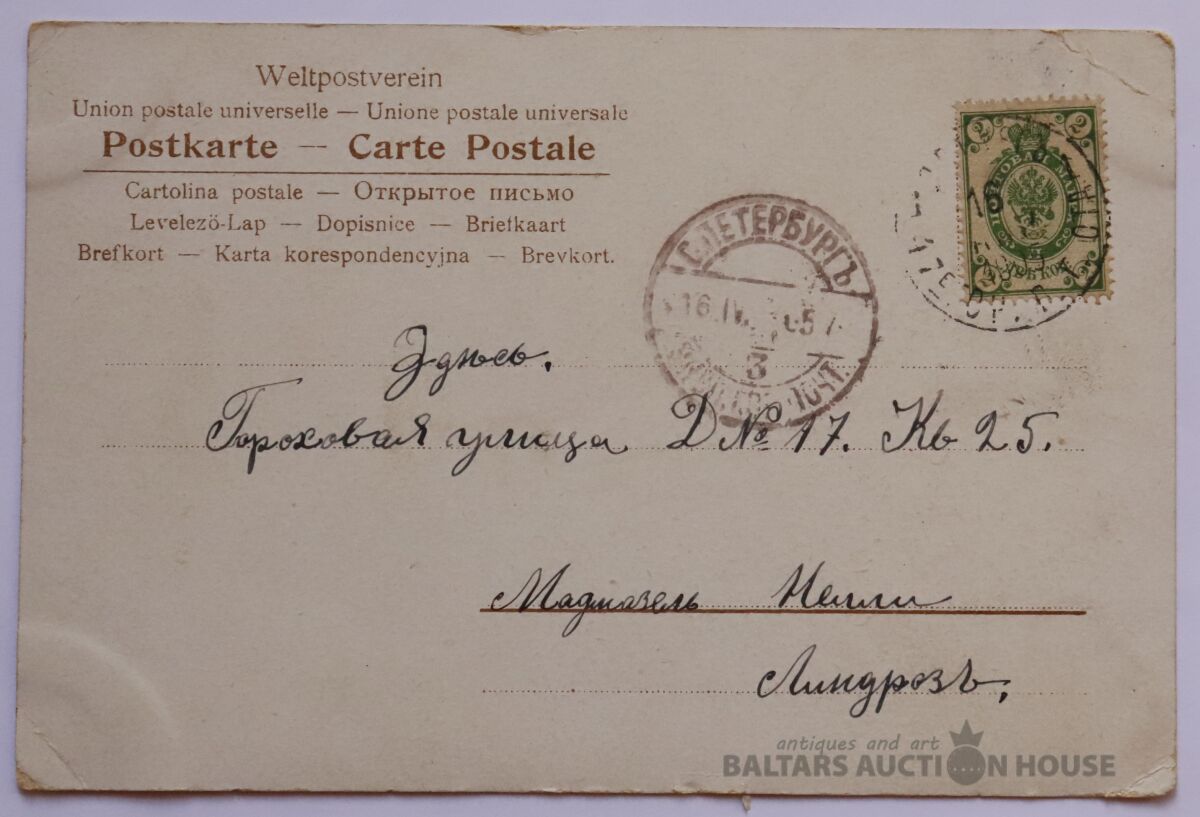 Weltpostverein
Union postale universelle — Unione postale universale
Postkarte — Carte Postale
Cartolina postale — Открытое письмо
Levelező-Lap — Dopisnice — Briefkaart
Brefkort — Karta korespondencyjna — Brevkort.
2 2
С.ПЕТЕРБУРГЪ
16.IV
3
ПОЧТ.
Здѣсь.
Гороховая улица Д № 17. Кв 25.
Мадмазель Нелли
Линдрозъ,
antiques and art
BALTARS AUCTION HOUSE